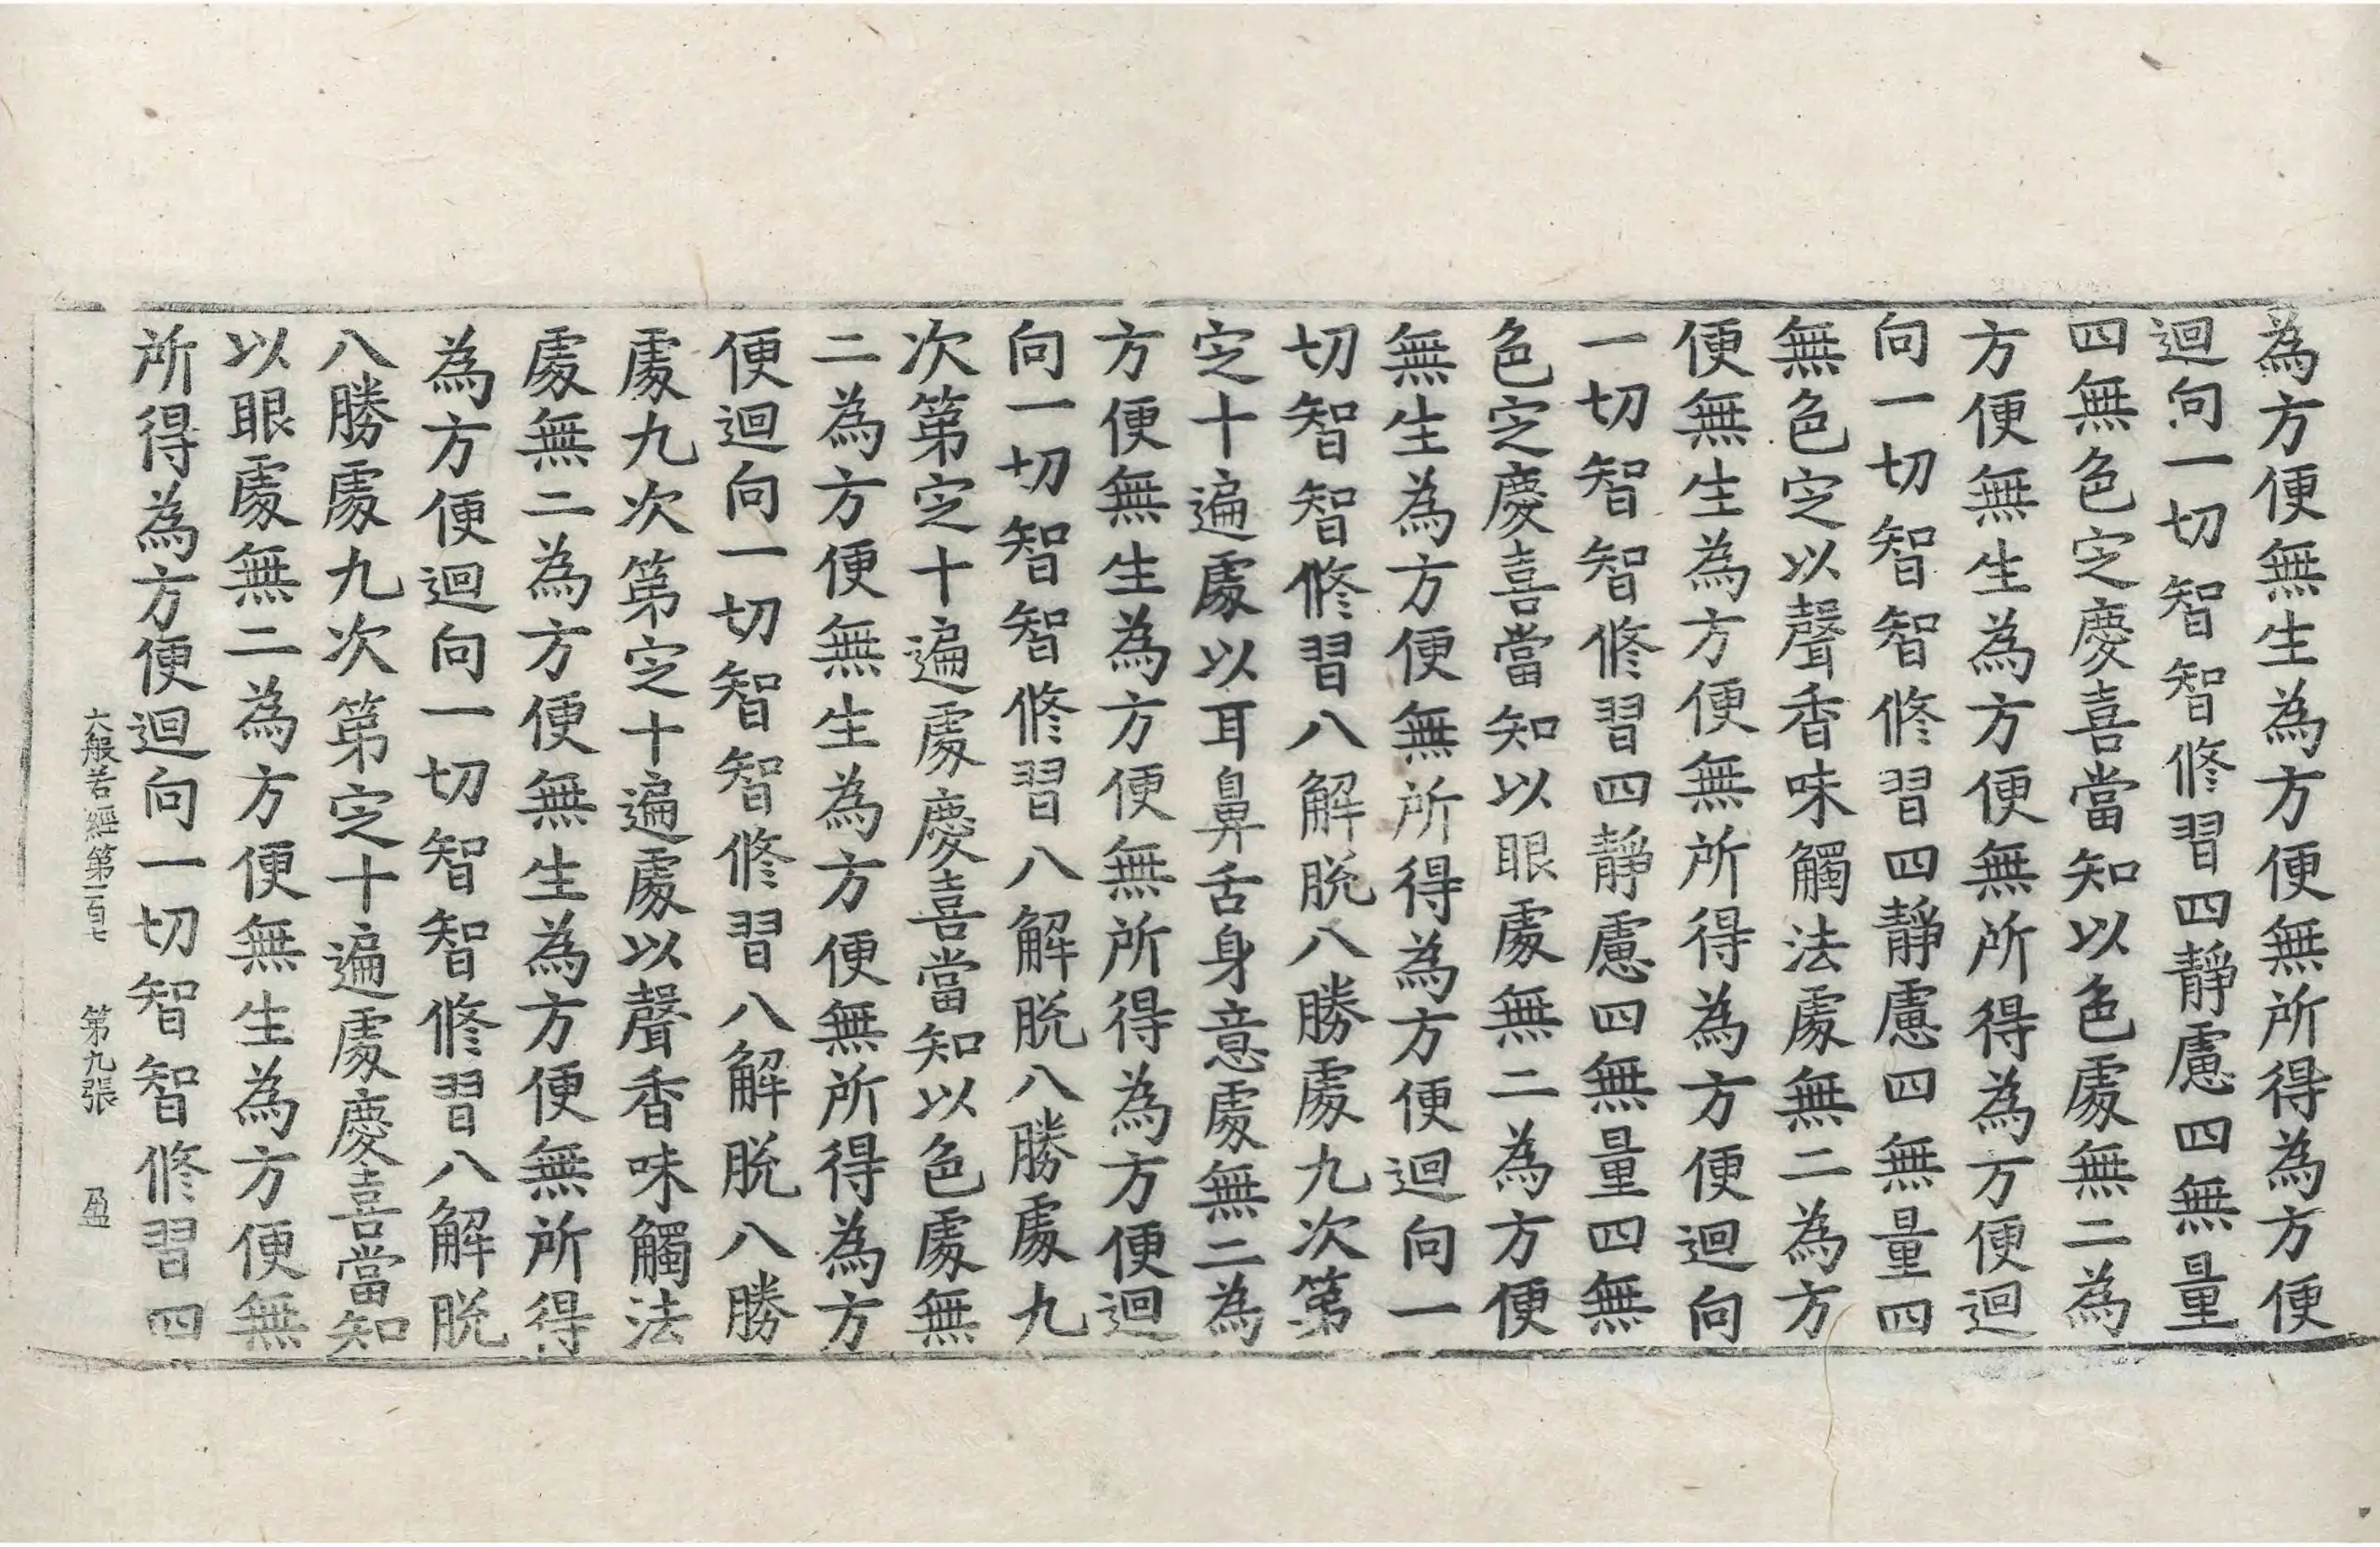 為方便無生為方便無所得為方便
迴向一切智智修習四靜慮四無量
四無色定慶喜當知以色處無二為
方便無生為方便無所得為方便迴
向一切智智修習四靜慮四無量四
無色定以聲香味觸法處無二為方
便無生為方便無所得為方便迴向
一切智智修習四靜慮四無量四無
色定慶喜當知以眼處無二為方便
無生為方便無所得為方便迴向一
切智智修習八解脫八勝處九次第
定十遍處以耳鼻舌身意處無二為
方便無生為方便無所得為方便迴
向一切智智修習八解脫八勝處九
次第定十遍處慶喜當知以色處無
二為方便無生為方便無所得為方
便迴向一切智智修習八解脫八勝
處九次第定十遍處以聲香味觸法
處無二為方便無生為方便無所得
為方便迴向一切智智修習八解脫
八勝處九次第定十遍處慶喜當知
以眼處無二為方便無生為方便無
所得為方便迴向一切智智修習四
大般若經第一百七 第九張 盈